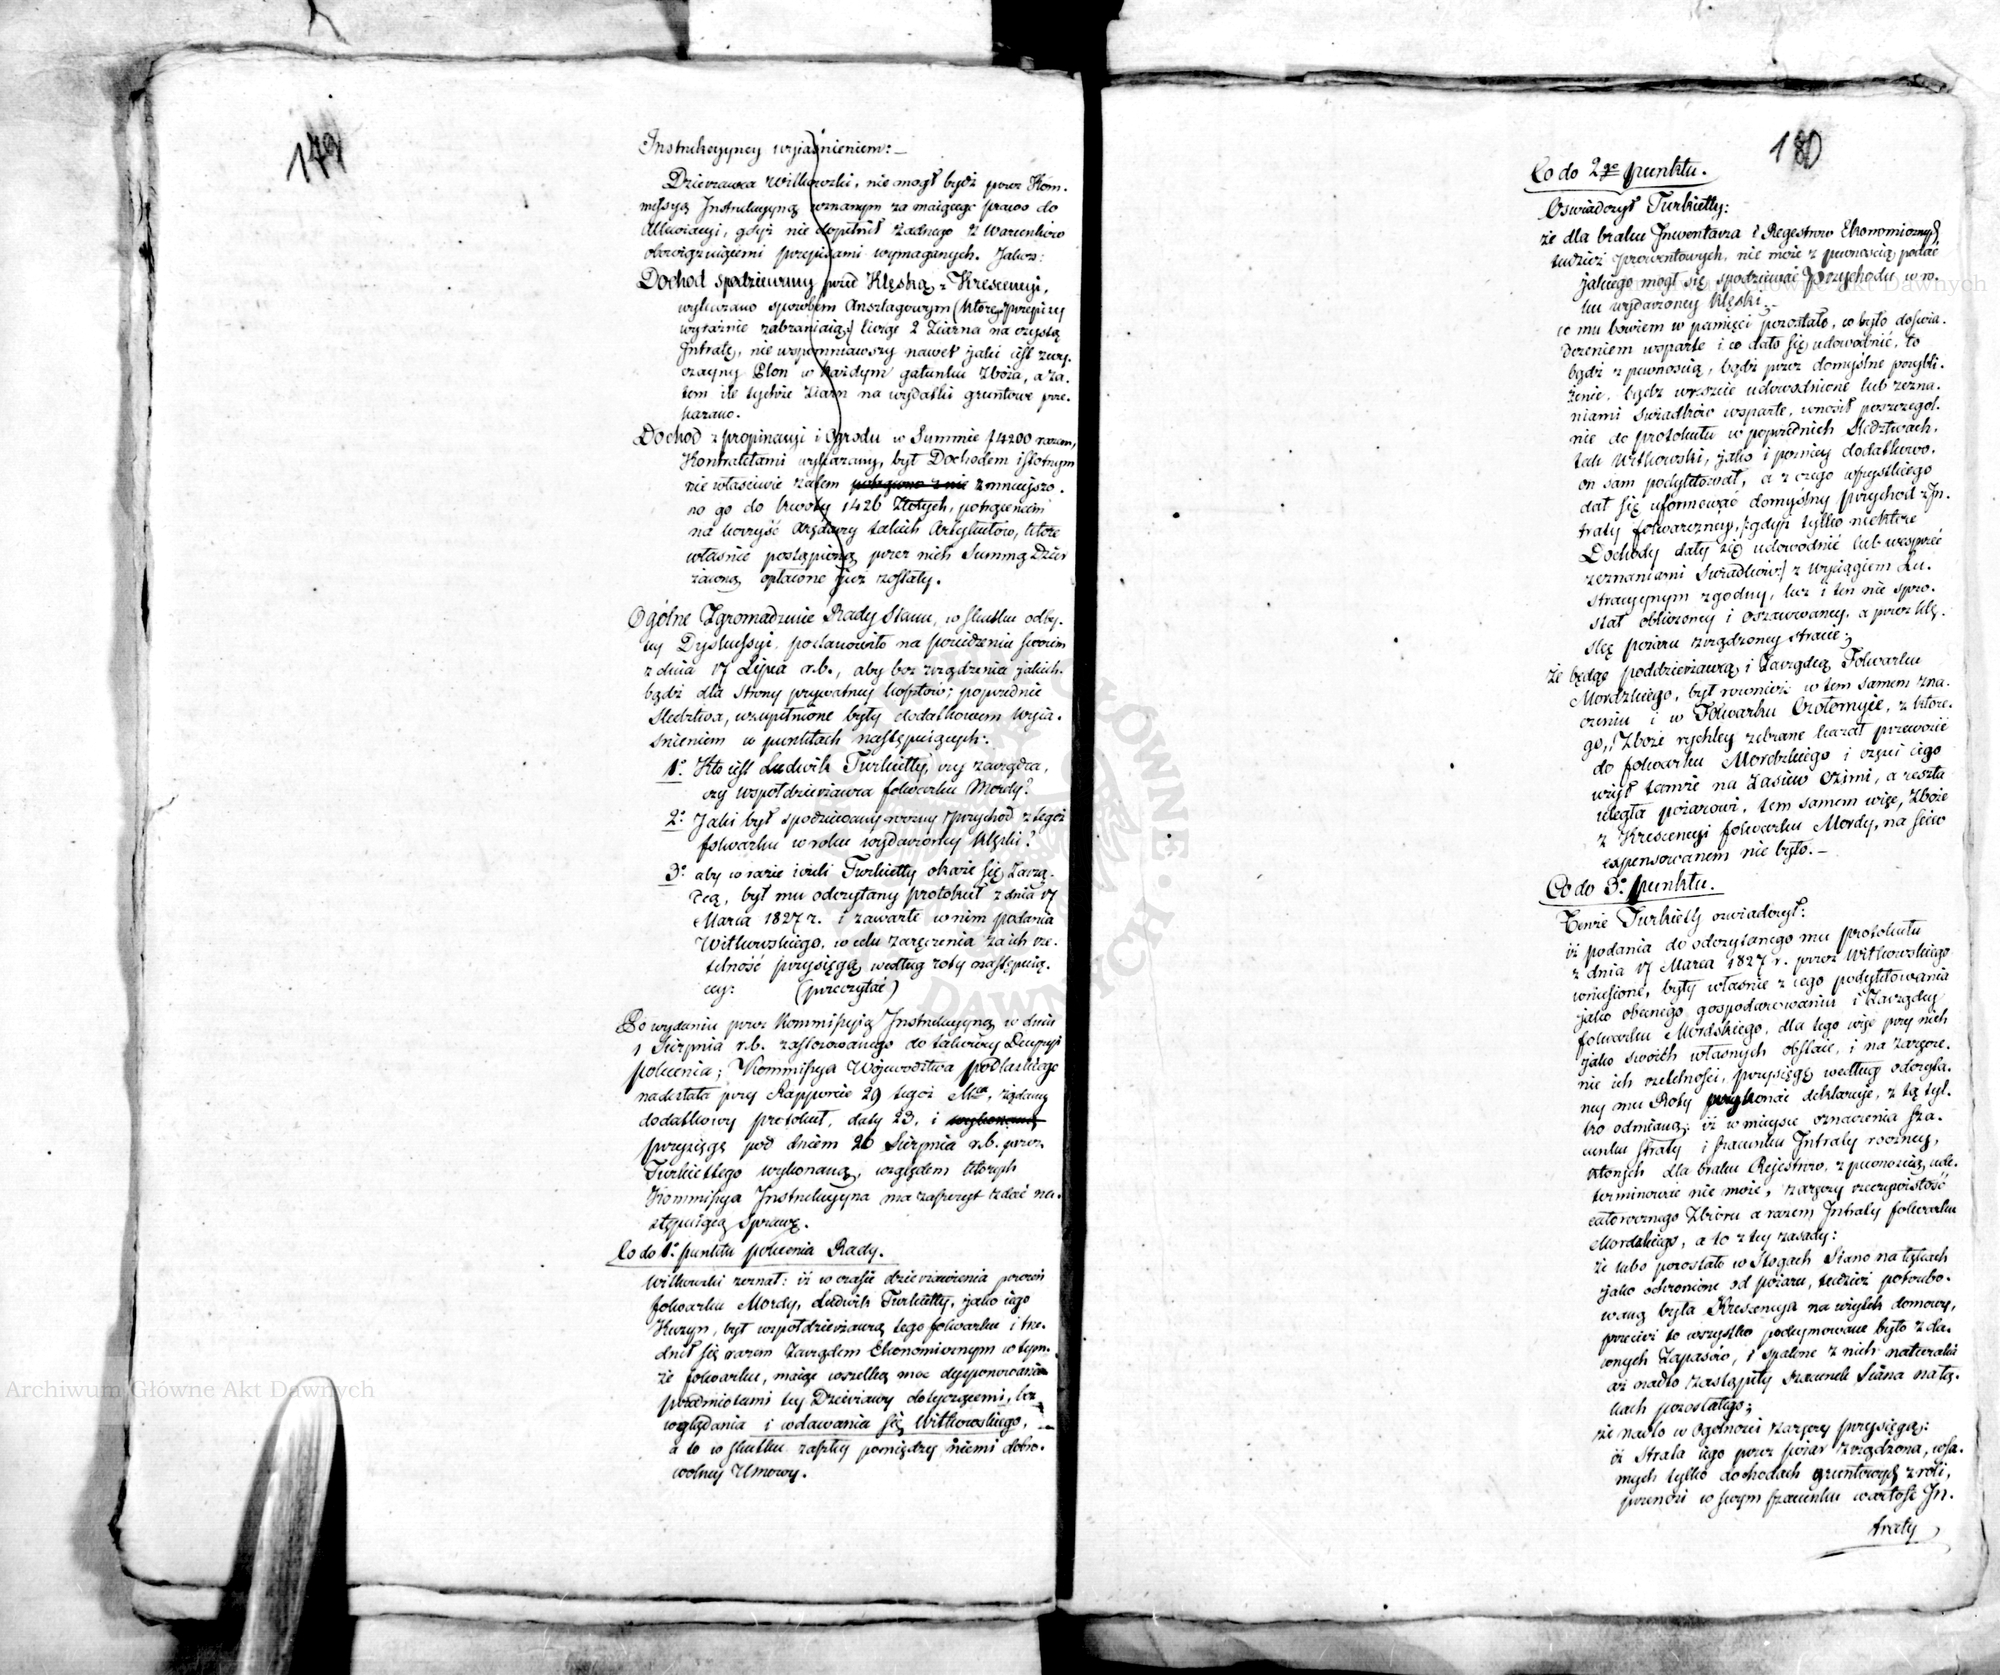 179
Instrukcyyney wyiaśnieniem: –
Dzierzawca Witkowski, nie mogł bydź przez Kom-
missyą Instrukcyyną uznanym za maiącego prawo do
Allewiacyi, gdyż nie dopełnił żadnego z Warunków
obowiązuiącemi przepisami wymaganych. Jakoż:
Dochod spodziewany przed Klęską z Krescencyi,
wykazano sposobem Anszlagowym (którego przepisy
wyraźnie zabraniaią) licząc 2 Ziarna na czystą
Intratę, nie wspomniawszy nawet jaki iest zwy-
czayny Plon w każdym gatunku Zboża, a za-
tem ile tychże Ziarn na wydatki gruntowe prze-
kazano.
Dochod z propinacyi i Ogrodu w Summie f 4200 razem,
Kontraktami wykazany, był Dochodem istotnym
nie właściwie zatem zmnieyszo-
no go do kwoty 1426 Złotych, potrąceniem
na korzyść Arędarzy takich Artykułów, które
właśnie postąpioną przez nich Summą Dzier
żawną opłacone już zostały.
Ogólne Zgromadzenie Rady Stanu, w skutku odby-
tey Dyskussyi, postanowiło na posiedzeniu swoiem
z dnia 17 Lipca r.b., aby bez zrządzenia jakich-
bądź dla strony prywatney kosztów; poprzednie
śledztwa, uzupełnione były dodatkowem wyia-
śnieniem w punktach następuiących:
1o Kto iest Ludwik Turkietty, czy zarządca,
czy współdzierżawca folwarku Mordy?
2o Jaki był spodziewany roczny przychod z tegoż
folwarku w roku wydarzoney klęski?
3o aby w razie ieżeli Turkietty okaże się Zarzą-
dcą, był mu odczytany protokuł z dnia 17
Marca 1827 r. i zawarte w nim podania
Witkowskiego, w celu zaręczenia za ich rze-
telność przysięgą według roty następuią-
cey: (przeczytać)
Po wydaniu przez Kommissyią Instrukcyyną w dniu
1 Sierpnia r.b. zastosowanego do takowey Decyzyi
polecenia; Kommissya Województwa Podlaskiego
nadesłała przy Rapporcie 29 tegoż Mca, żądany
dodatkowy protokuł, daty 23, i wykonaną
przysięgę pod dniem 26 Sierpnia r.b. przez
Turkiettego wykonaną, względem których
Kommissya Instrukcyyna ma zaszczyt zdać na-
stępuiącą Sprawę.
Co do 1o punktu polecenia Rady.
Witkowski zeznał: iż w czasie dzierżawienia przezeń
folwarku Mordy, Ludwik Turkietty, jako iego
Kuzyn, był współdzierżawcą tego folwarku i tru-
dnił się razem Zarządem Ekonomicznym w tym-
że folwarku, maiąc wszelką moc dysponowania
przedmiotami tey Dzierżawy dotyczącemi, bez
wglądania i wdawania się Witkowskiego,
a to w skutku zaszłey pomiędzy niemi dobro-
wolney Umowy.
180
Co do 2go punktu.
Oświadczył Turkietty:
że dla braku Inwentarza i Regestrow Ekonomicznych
tudzież prowentowych, nie może z pewnością podać
jakiego mogł się spodziewać Przychodu w ro-
ku wydarzoney klęski;
co mu bowiem w pamięci pozostało, co było doświa-
dczeniem wsparte i co dało się udowodnić, to
bądź z pewnością, bądź przez domyślne przybli-
żenie, bądź wreszcie udowodnione lub zezna-
niami świadków wsparte, wnosił poszczegól-
nie do protokułu w poprzednich śledztwach,
tak Witkowski, jako i poźniey dodatkowo,
on sam podyktował, a z czego wszystkiego
dał się uformować domyślny przychod z In-
traty folwarczney, (gdyż tylko niektóre
Dochody dały się udowodnić lub wesprzeć
zeznaniami świadków) z wyciągiem Lu-
stracyynym zgodny, lecz i ten nie spro-
stał obliczoney i oszacowaney, a przez klę-
skę pożaru zrządzoney stracie;
że będąc poddzierżawcą i Zarządcą Folwarku
Mordzkiego, był rownież w tem samem zna-
czeniu i w Folwarku Czołomyie, z które-
go, Zboże rychley zebrane kazał przewozić
do folwarku Mordzkiego i części iego
użył tamże na Zasiew Ozimi, a reszta
uległa pożarowi, tem samem więc, Zboże
z Krescencyi folwarku Mordy, na siew
expensowanem nie było. –
Co do 3o punktu.
Tenże Turkietty oświadczył:
iż podania do odczytanego mu protokułu
z dnia 17 Marca 1827 r. przez Witkowskiego
wniesione, były właśnie z iego podyktowania
jako obecnego gospodarowaniu i Zarządcy
folwarku Mordzkiego, dla tego więc przy nich
jako swoich własnych obstaie, i na zaręcze-
nie ich rzetelności, przysięgę według odczyta-
ney mu Roty wykonać deklaruje, z tą tyl-
ko odmianą: iż w miejsce oznaczenia sza-
cunku straty i szacunku Intraty roczney,
których dla braku Rejestrów, z pewnością ude-
terminować nie może, zaręczy rzeczywistość
całorocznego Zbioru a razem Intraty folwarku
Mordzkiego, a to z tey zasady:
że lubo pozostało w Stogach Siano na łąkach
jako ochronione od pożaru, tudzież potrzebo-
waną była Krescencya na wyżyw domowy,
przecież to wszystko podeymowane było z da-
wnych Zapasów, i spalone z nich naturalia
aż nadto zastąpiły szacunek Siana na łą-
kach pozostałego;
że nadto w Ogolności zaręczy przysięgą:
iż Strata iego przez pożar zrządzona, w sa-
mych tylko dochodach gruntowych z roli,
przenosi w swym szacunku wartość In-
traty
Archiwum Główne Akt Dawnych